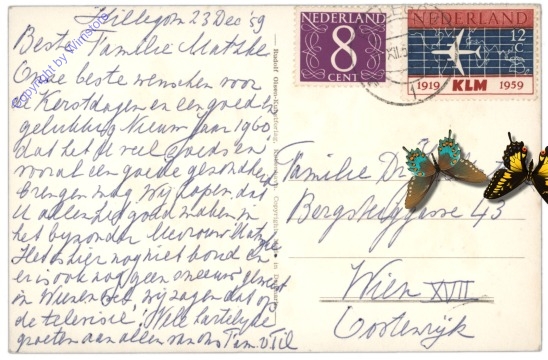 Hillegom 23 Dec 59
Beste Familie Matzke
Onze beste wenschen voor
de Kerstdagen en een goed en
gelukkig Nieuw Jaar 1960
dat het U veel goeds en
vooral een goede gezondheid
brengen mag. Wij hopen dat
U allen goed maken in
het byzonder Mevrouw Matzke
Het is hier nog niet koud en
er is ook nog geen sneeuw geweest
in Wienen wel, wij zagen dat op
de televisie. Vele hartelyke
groeten aan allen van ons Fam. v Til
Copyright by Wimstore
Rudolf Olsen
NEDERLAND
8
CENT
NEDERLAND
12
C
1919 KLM 1959
Familie Dr
Bergsteiggasse 43
Wien XVII
Oostenrijk